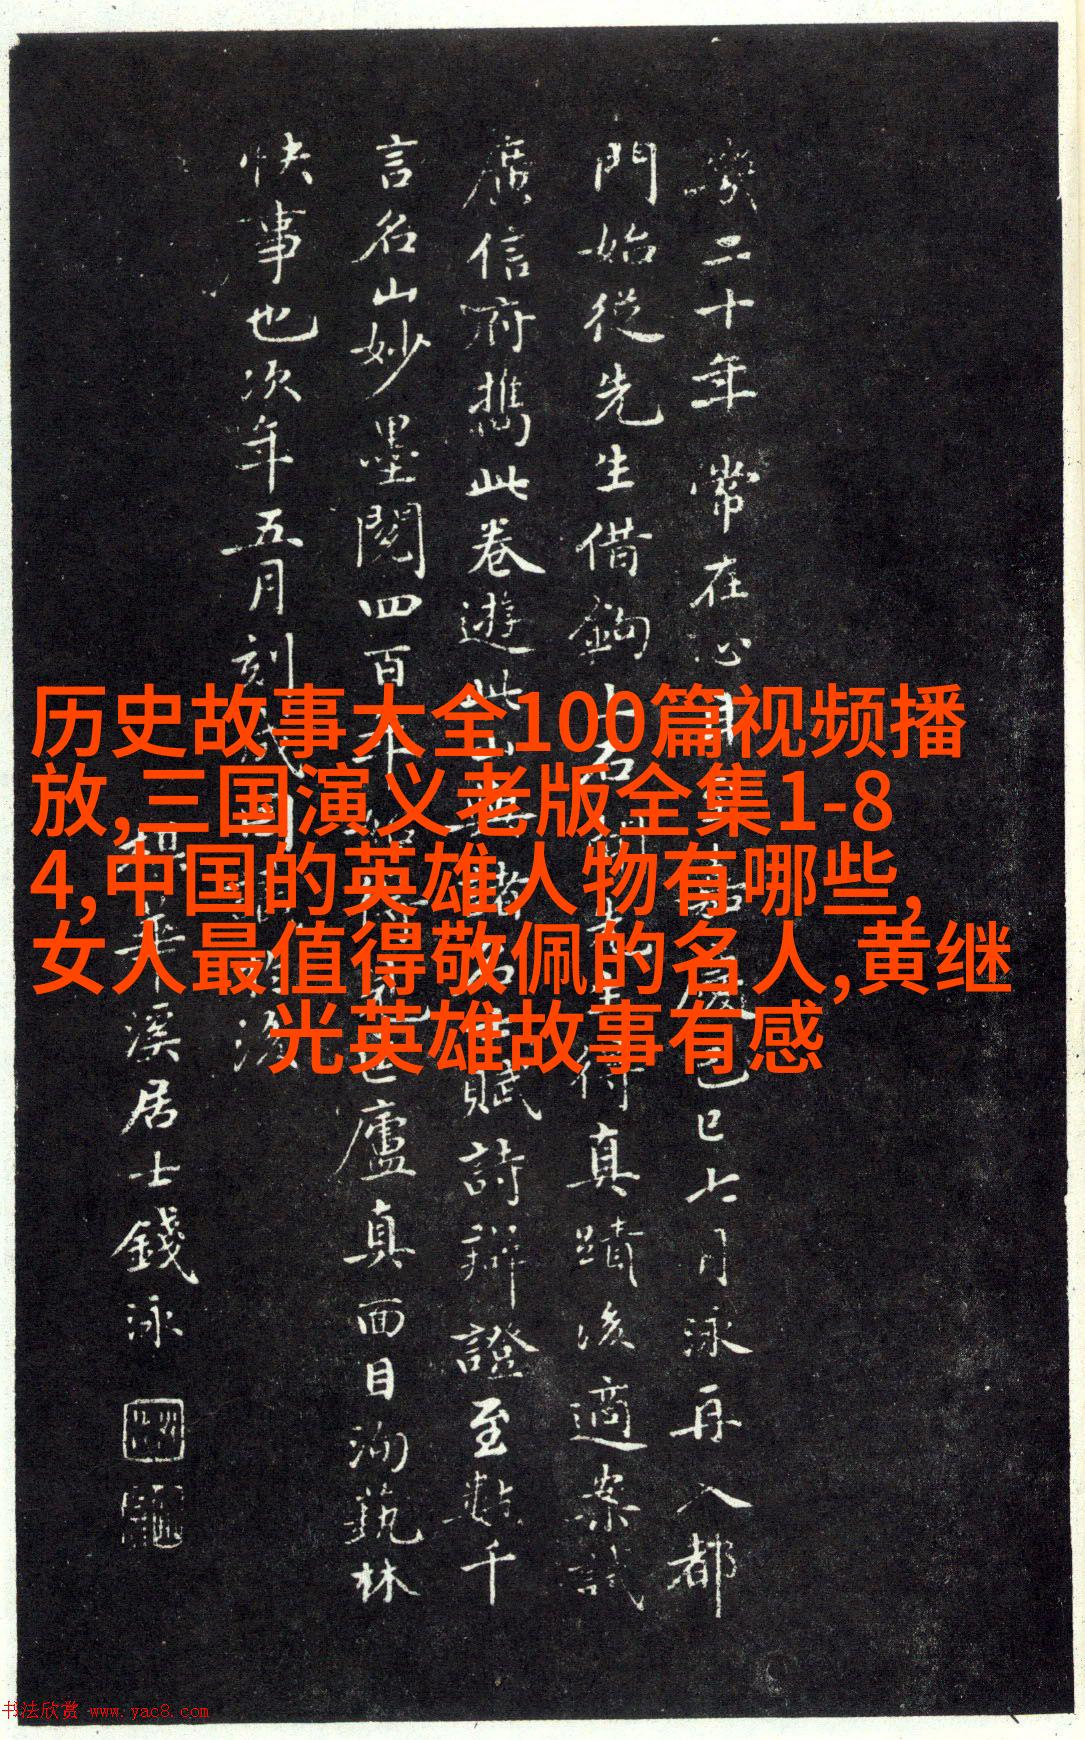 历史故事大全100篇视频播
放,三国演义老版全集1-8
4,中国的英雄人物有哪些,
女人最值得敬佩的名人,黄继
光英雄故事有感
二十年常在心目嘉慶己巳七月泳再入都
門始從先生借鉤上石得真蹟後適案試
廣信府攜此卷遊賦詩辨證至數千
言名山妙墨閱四百年廬真面目洵藝林
快事也次年五月刻成
梅華溪居士錢泳
书法欣赏 www.yac8.com